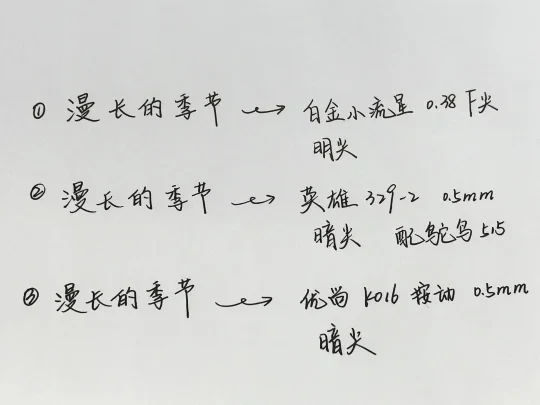 ① 漫长的季节 → 白金小流星 0.38 F尖
明尖
② 漫长的季节 → 英雄 329-2 0.5mm
暗尖 配鸵鸟 515
③ 漫长的季节 → 优尚 K016 按动 0.5mm
暗尖